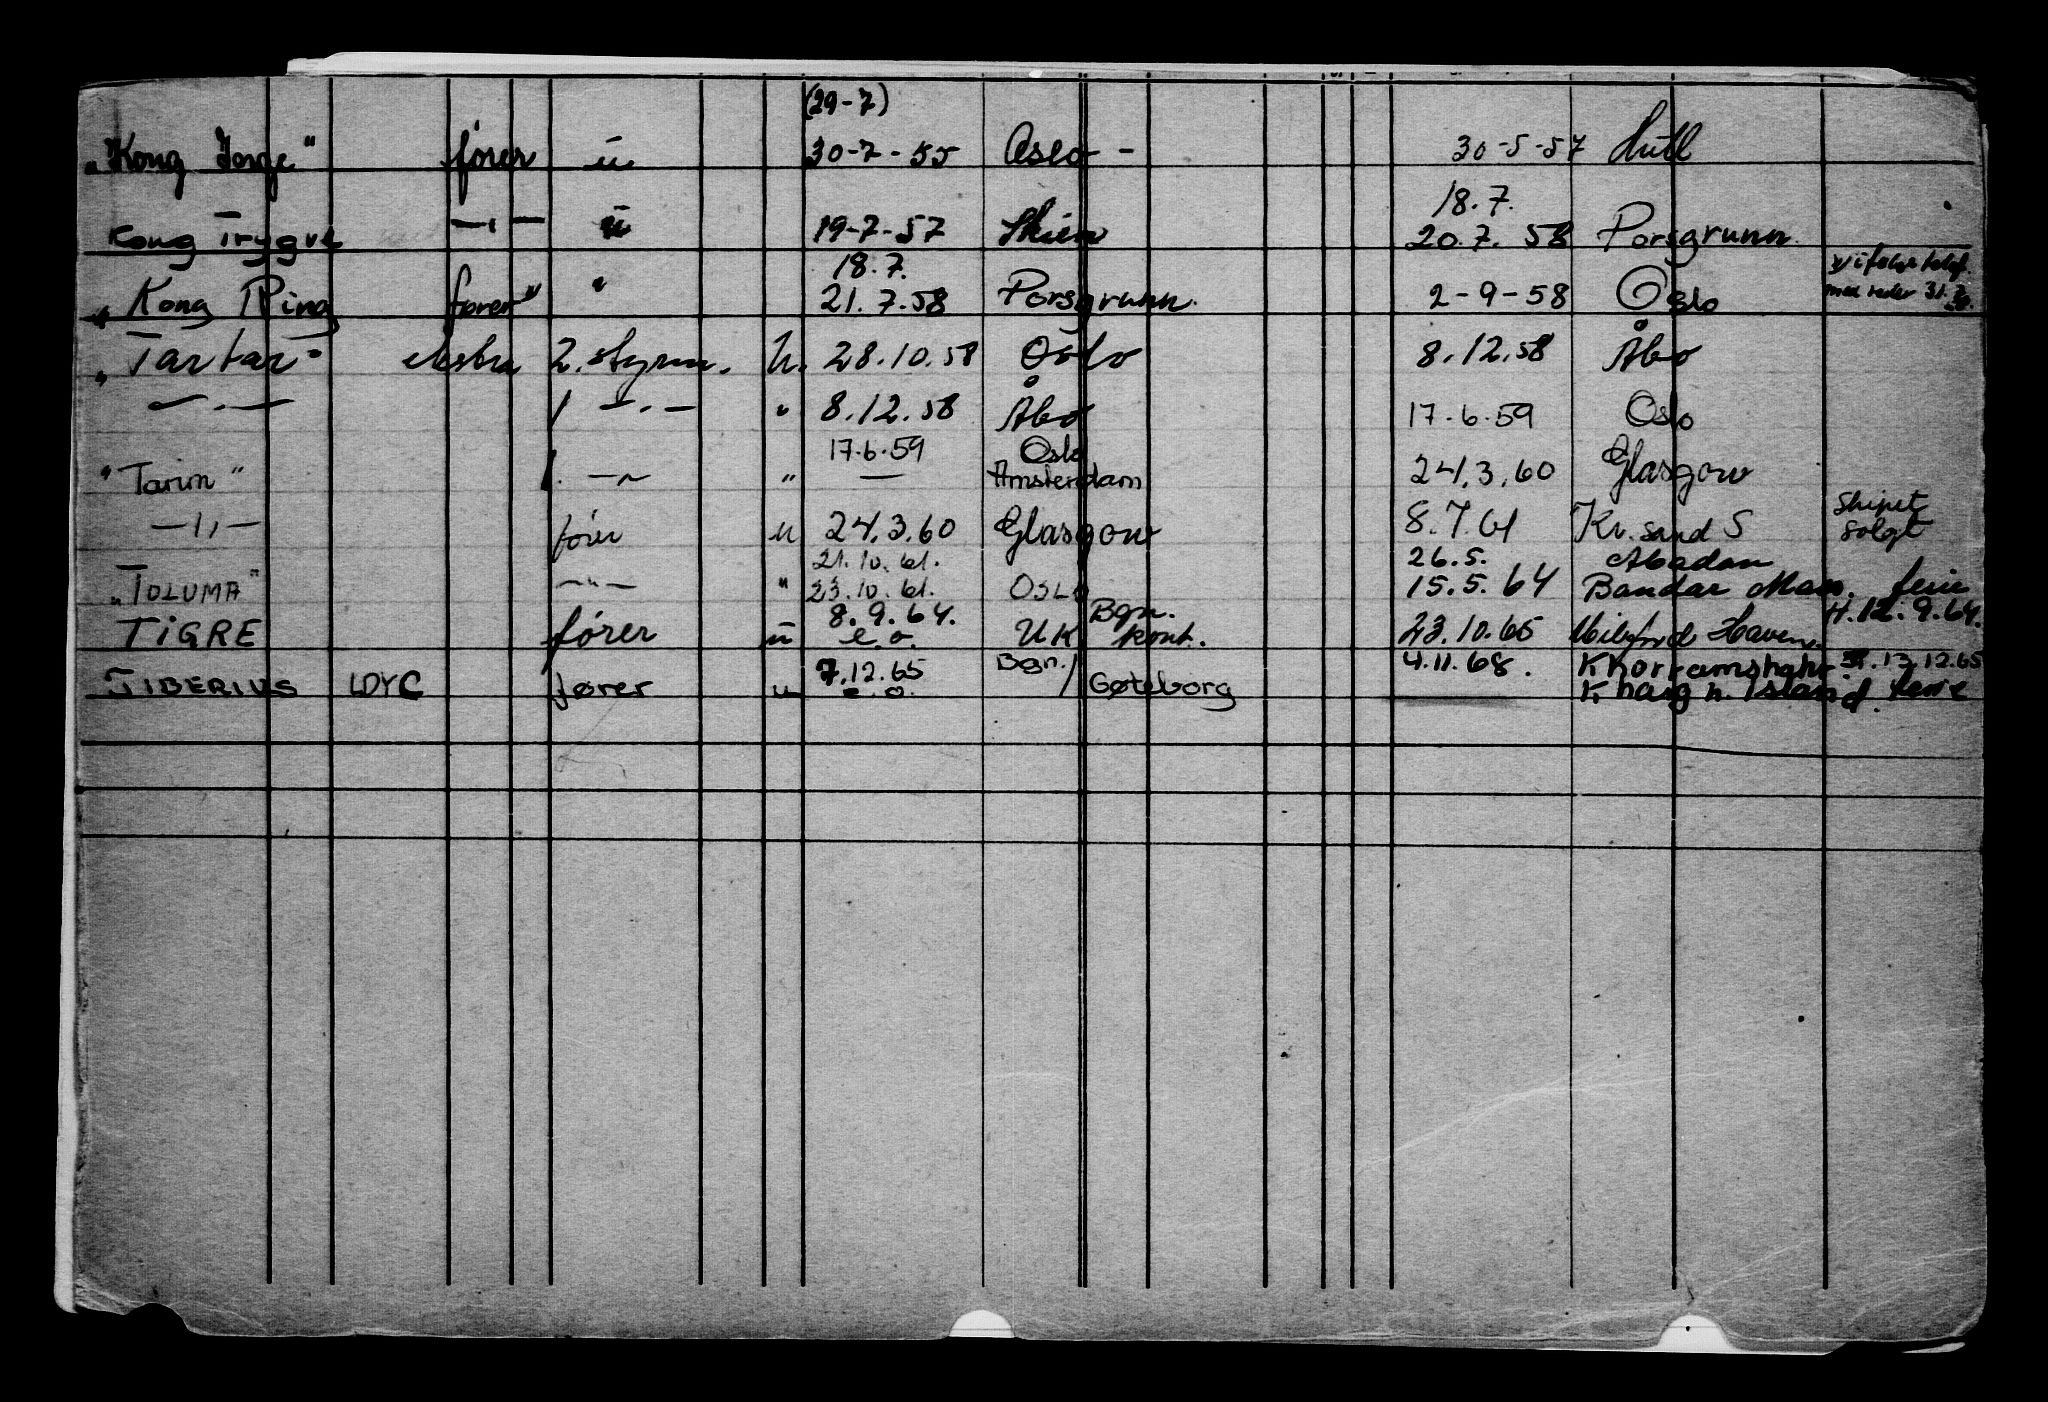 (29-7)
"Kong Inge" fører u 30-7-55 Oslo - 30-5-57 Hull
18.7.
Kong Trygve —"— u 19-7-57 Skien 20.7. 58 Porsgrunn.
18.7. x/ ifølge telef.
"Kong Ring fører" " 21.7.58 Porsgrunn. 2-9-58 Oslo med reder 31.
"Tartar" ekstra 2. styrm. u. 28.10.58 Oslo 8.12.58 Åbo
—.— 1 —.— " 8.12.58 Åbo 17.6.59 Oslo
17.6.59 Oslo
"Tarim" 1. —"— " — Amsterdam 24.3.60 Glasgow
—",— fører u 24.3.60 Glasgow 8.7.61 Kr.sand S Skipet solgt
21.10.61. 26.5. Abadan
"TOLUMA" —"— " 23.10.61. OSLO 15.5.64 Bandar Mas. ferie
8.9.64. Bgn. H.12.9.64.
TIGRE fører u e.o. UK kont. 23.10.65 Milford Haven.
7.12.65 Bgn./ 4.11.68. Khorramshahr 13.12.65
TIBERIUS LDYC fører u e.o. Gøteborg Kharg n. Island. ferie